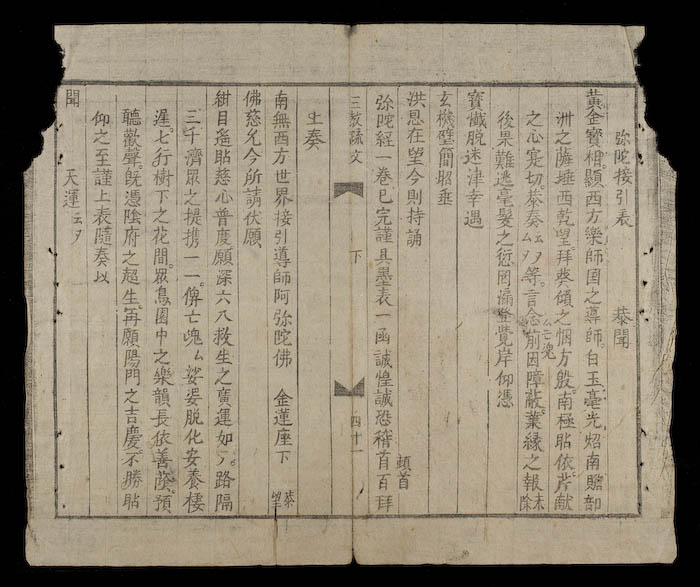 弥陀接引表　恭聞
黄金寶相顯西方樂師國之導師。白玉毫光炤南贍部
洲之薩埵西乾望。拜葵傾之悃方殷。南極瞻依。芹獻
之心寔切恭奏 等。言念亡魂前因障蔽。業緣之報未除
後果難逃毫髮之愆。罔漏登覺岸仰憑
寳懺脱迷津幸遇
玄機壁簡昭垂
洪恩在望今則持誦
弥陀経一卷已完謹具墨表一函誠惶誠恐稽首頓首百拜
三教疏文　下　四十一
上奏
南無西方世界接引導師阿弥陀佛　金蓮座下　恭望
佛慈允今所請伏願
紺目遥貼慈心普度願深六八救生之廣運如 路隔
三千濟眾之提携一一。俾亡魂ム娑婆脱化安養棲
遲。七行樹下之花間。眾鳥園中之樂韻長依善蔭。預
聽歡聲。旣憑陰府之超生。再願陽門之吉慶。不勝貼
仰之至謹上表隨奏以
聞　天運